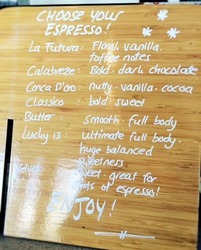 CHOOSE YOUR
ESPRESSO!
La Futura: Floral, vanilla.
toffee notes
Calabreze: Bold. dark chocolate
Conca D'oro: nutty. vanilla. cocoa
Classico: bold. sweet
Butter: Smooth. full body
Lucky 13: Ultimate full body.
huge balanced
sweetness
sweet. great for
of espresso!
ENJOY!